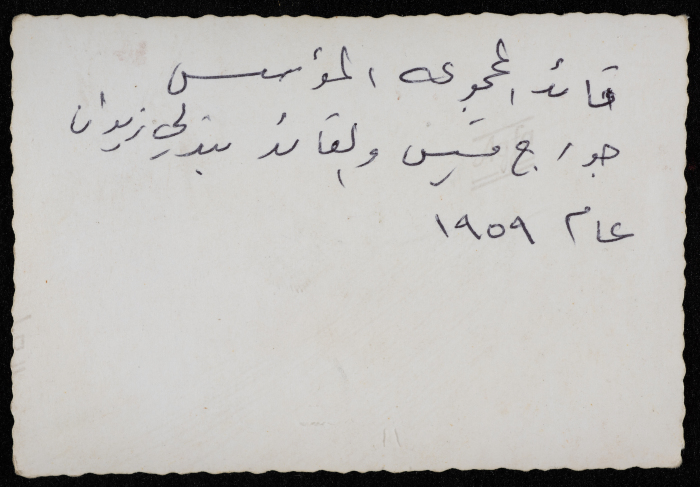 قائد المجموعة المؤسس
جورج قسيس والقائد بندلي زيدان
عام ١٩٥٩